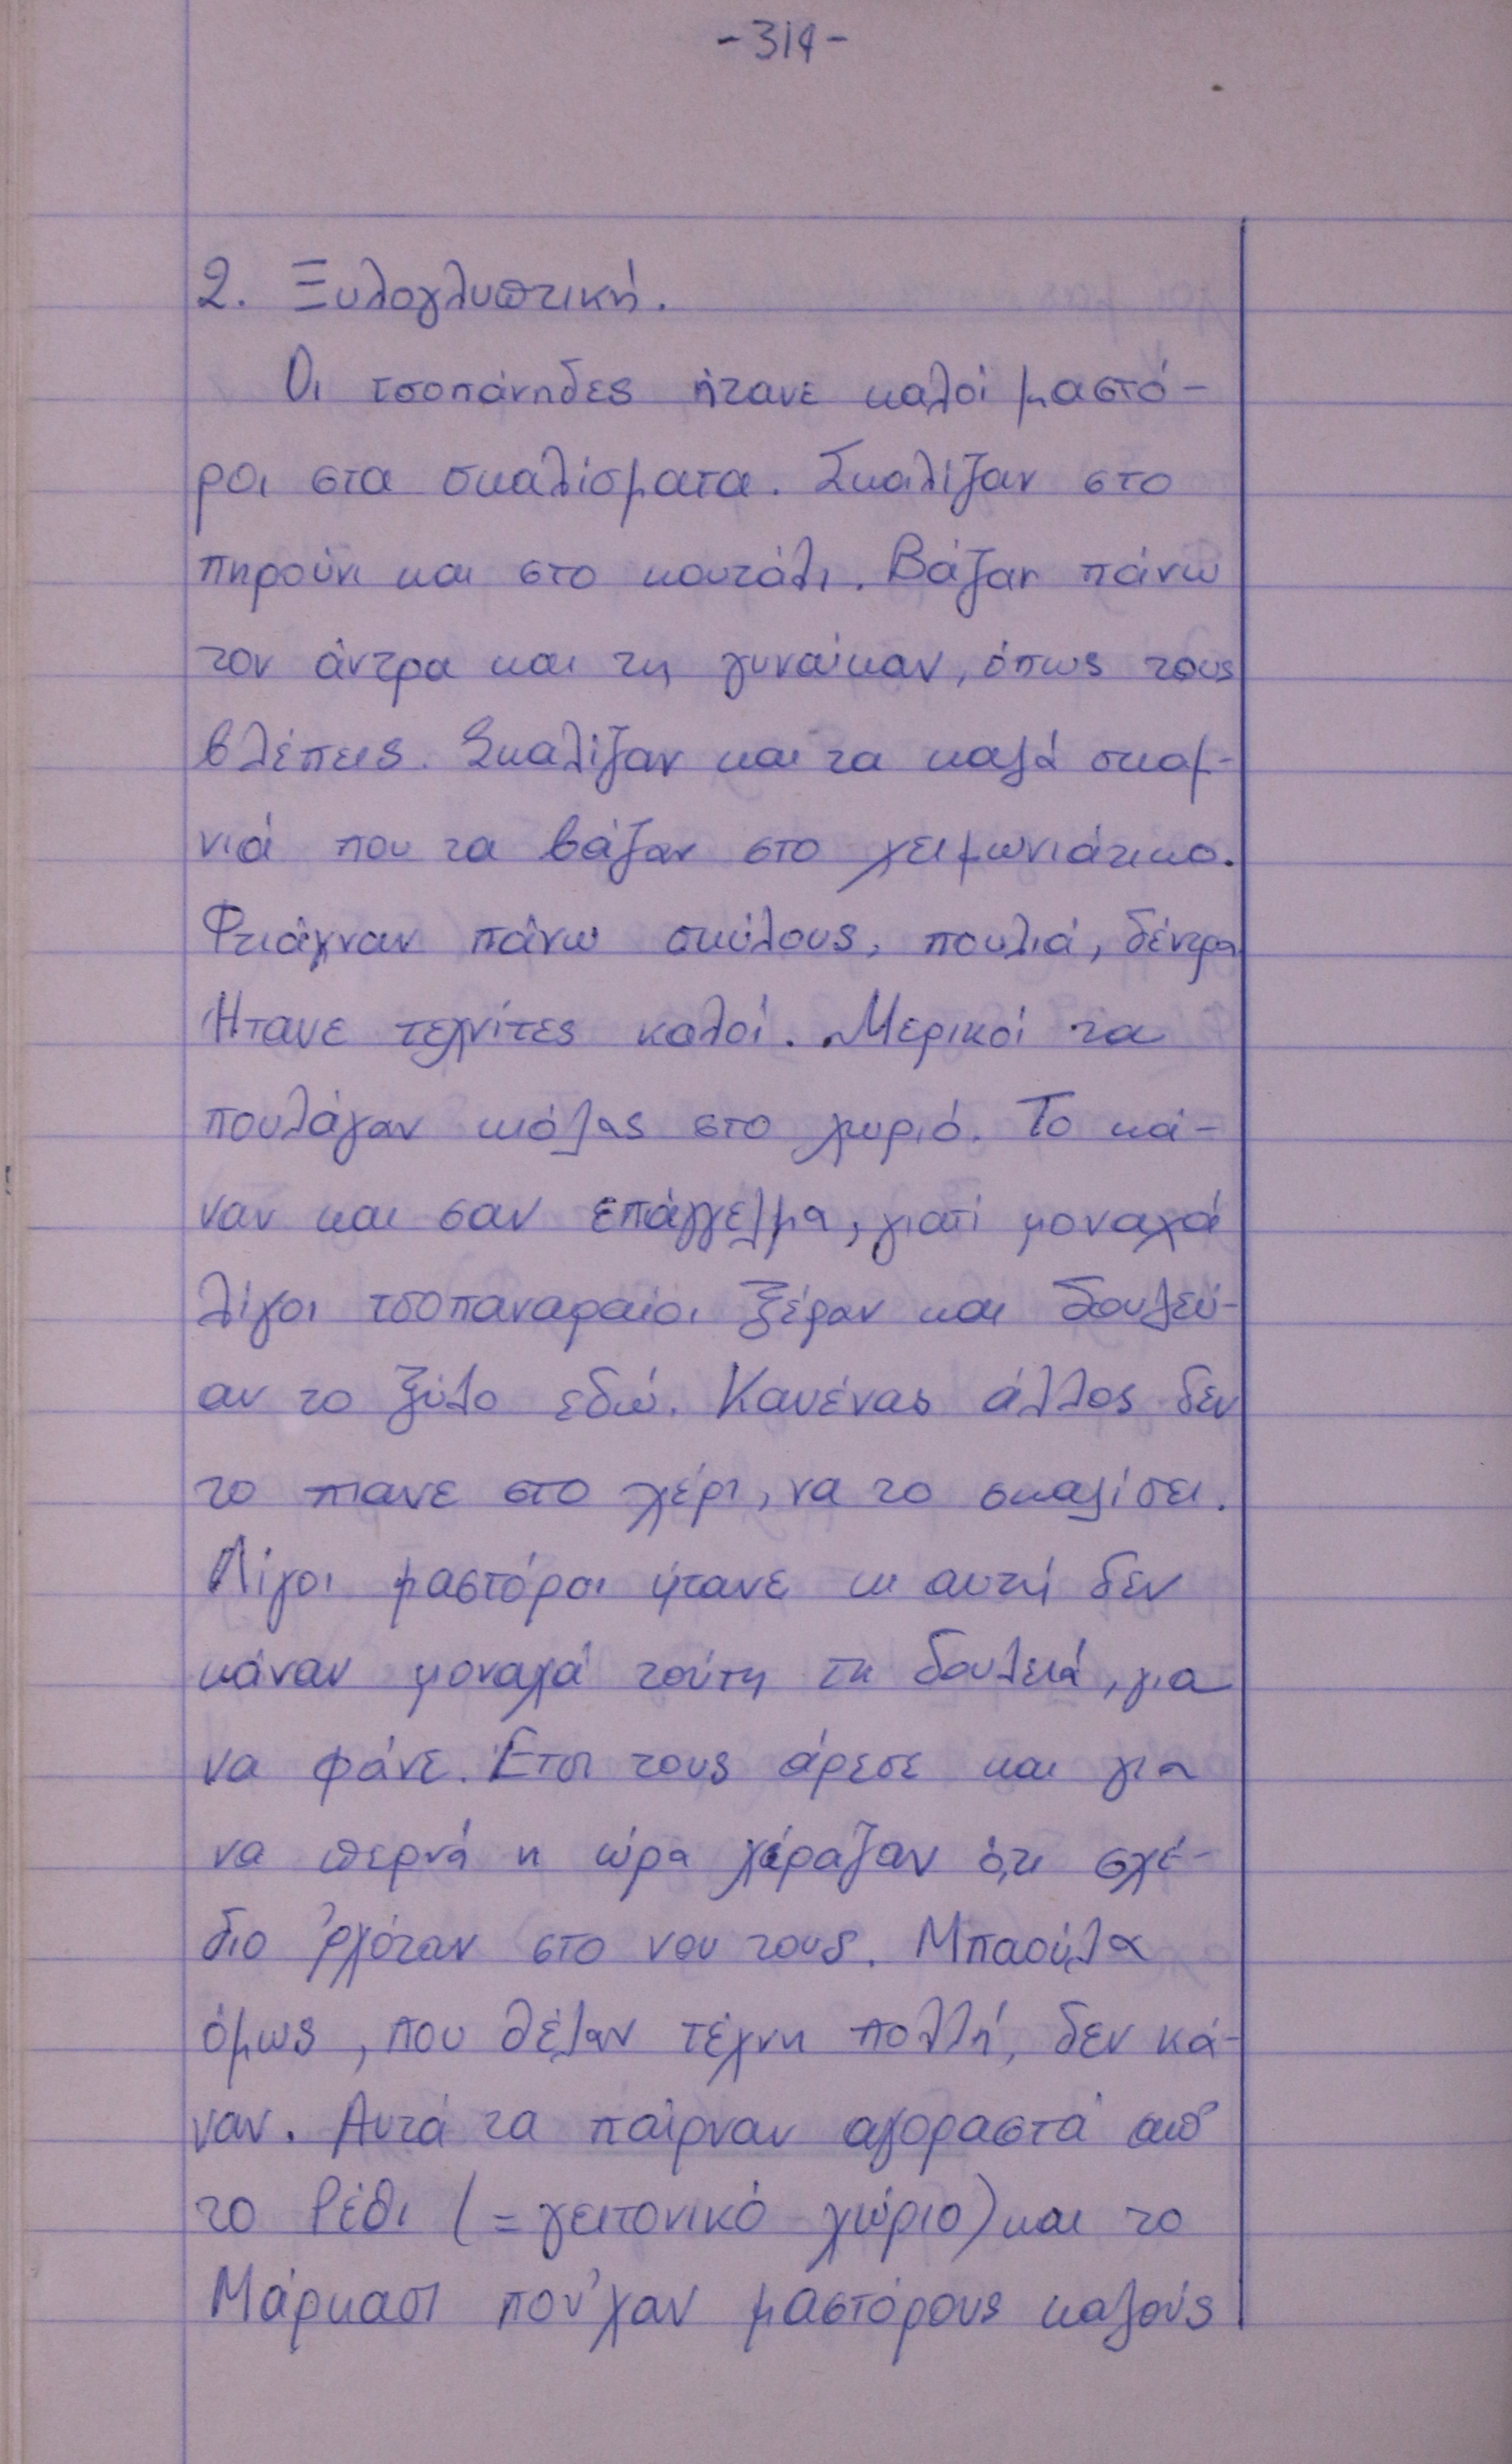 -314-
2. Ξυλογλυπτική.
Οι τσοπάνηδες ήτανε καλοί μαστό-
ροι στα σκαλίσματα. Σκαλίζαν στο
πηρούνι και στο κουτάλι. Βάζαν πάνω
τον άντρα και τη γυναίκαν, όπως τους
βλέπεις. Σκαλίζαν και τα καλά σκαμ-
νιά που τα βάζαν στο χειμωνιάτικο.
Φτιάχναν πάνω σκύλους, πουλιά, δέντρα
Ήτανε τεχνίτες καλοί. Μερικοί τα
πουλάγαν κιόλας στο χωριό. Το κά-
ναν και σαν επάγγελμα, γιατί μοναχά
λίγοι τσοπαναραίοι ξέραν και δουλεύ-
αν το ξύλο εδώ. Κανένας άλλος δεν
το πιανε στο χέρι, να το σκαλίσει.
Λίγοι μαστόροι ήτανε κι αυτή δεν
κάναν μοναχά τούτη τη δουλειά, για
να φάνε. Έτσι τους άρεσε και για
να περνά η ώρα χάραζαν ό,τι σχέ-
διο 'ρχόταν στο νου τους. Μπαούλα
όμως, που θέλαν τέχνη πολλή, δεν κά-
ναν. Αυτά τα παίρναν αγοραστά απ'
το Ρέθι (= γειτονικό χώριο) και το
Μάρκασι πού'χαν μαστόρους καλούς